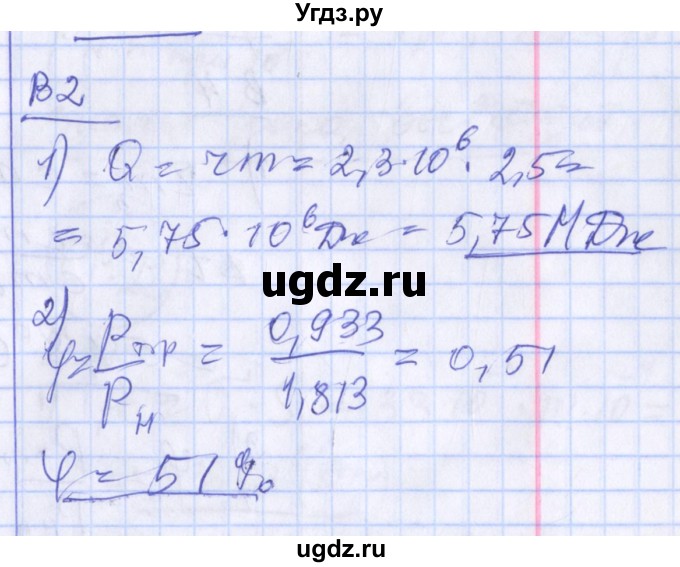 Угдз.ру
В2
1) Q = rm = 2,3·10⁶· 2,5=
= 5,75·10⁶Дж = 5,75МДж
ugdz.ru
2)
φ = Pпр/Pн = 0,933/1,813 = 0,51
φ = 51%
ugdz.ru